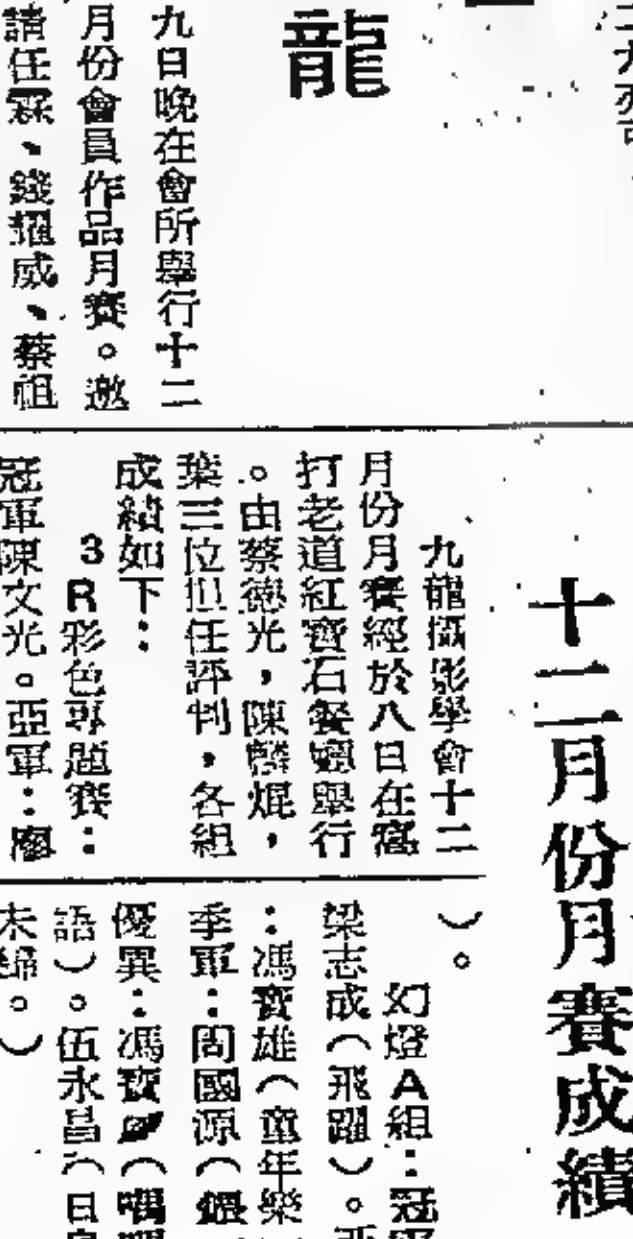 龍
九日晚在會所舉行十二
月份會員作品月賽。邀
請任霖、錢耀威、蔡祖
十二月份月賽成績
九龍攝影學會十二
月份月賽經於八日在窩
打老道紅寶石餐廳舉行
。由蔡德光，陳麟焜，
葉三位担任評判，各組
成績如下：
3R彩色專題賽：
冠軍陳文光。亞軍：廖
）。
幻燈A組：冠軍
梁志成（飛躍）。亞
：馮寶雄（童年樂
季軍：周國源（
優異：馮寶（
語）。伍永昌（日
未歸。）